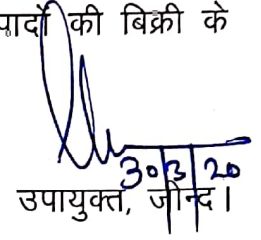 पादों की बिक्री के
30/3/20
उपायुक्त, जीन्द।